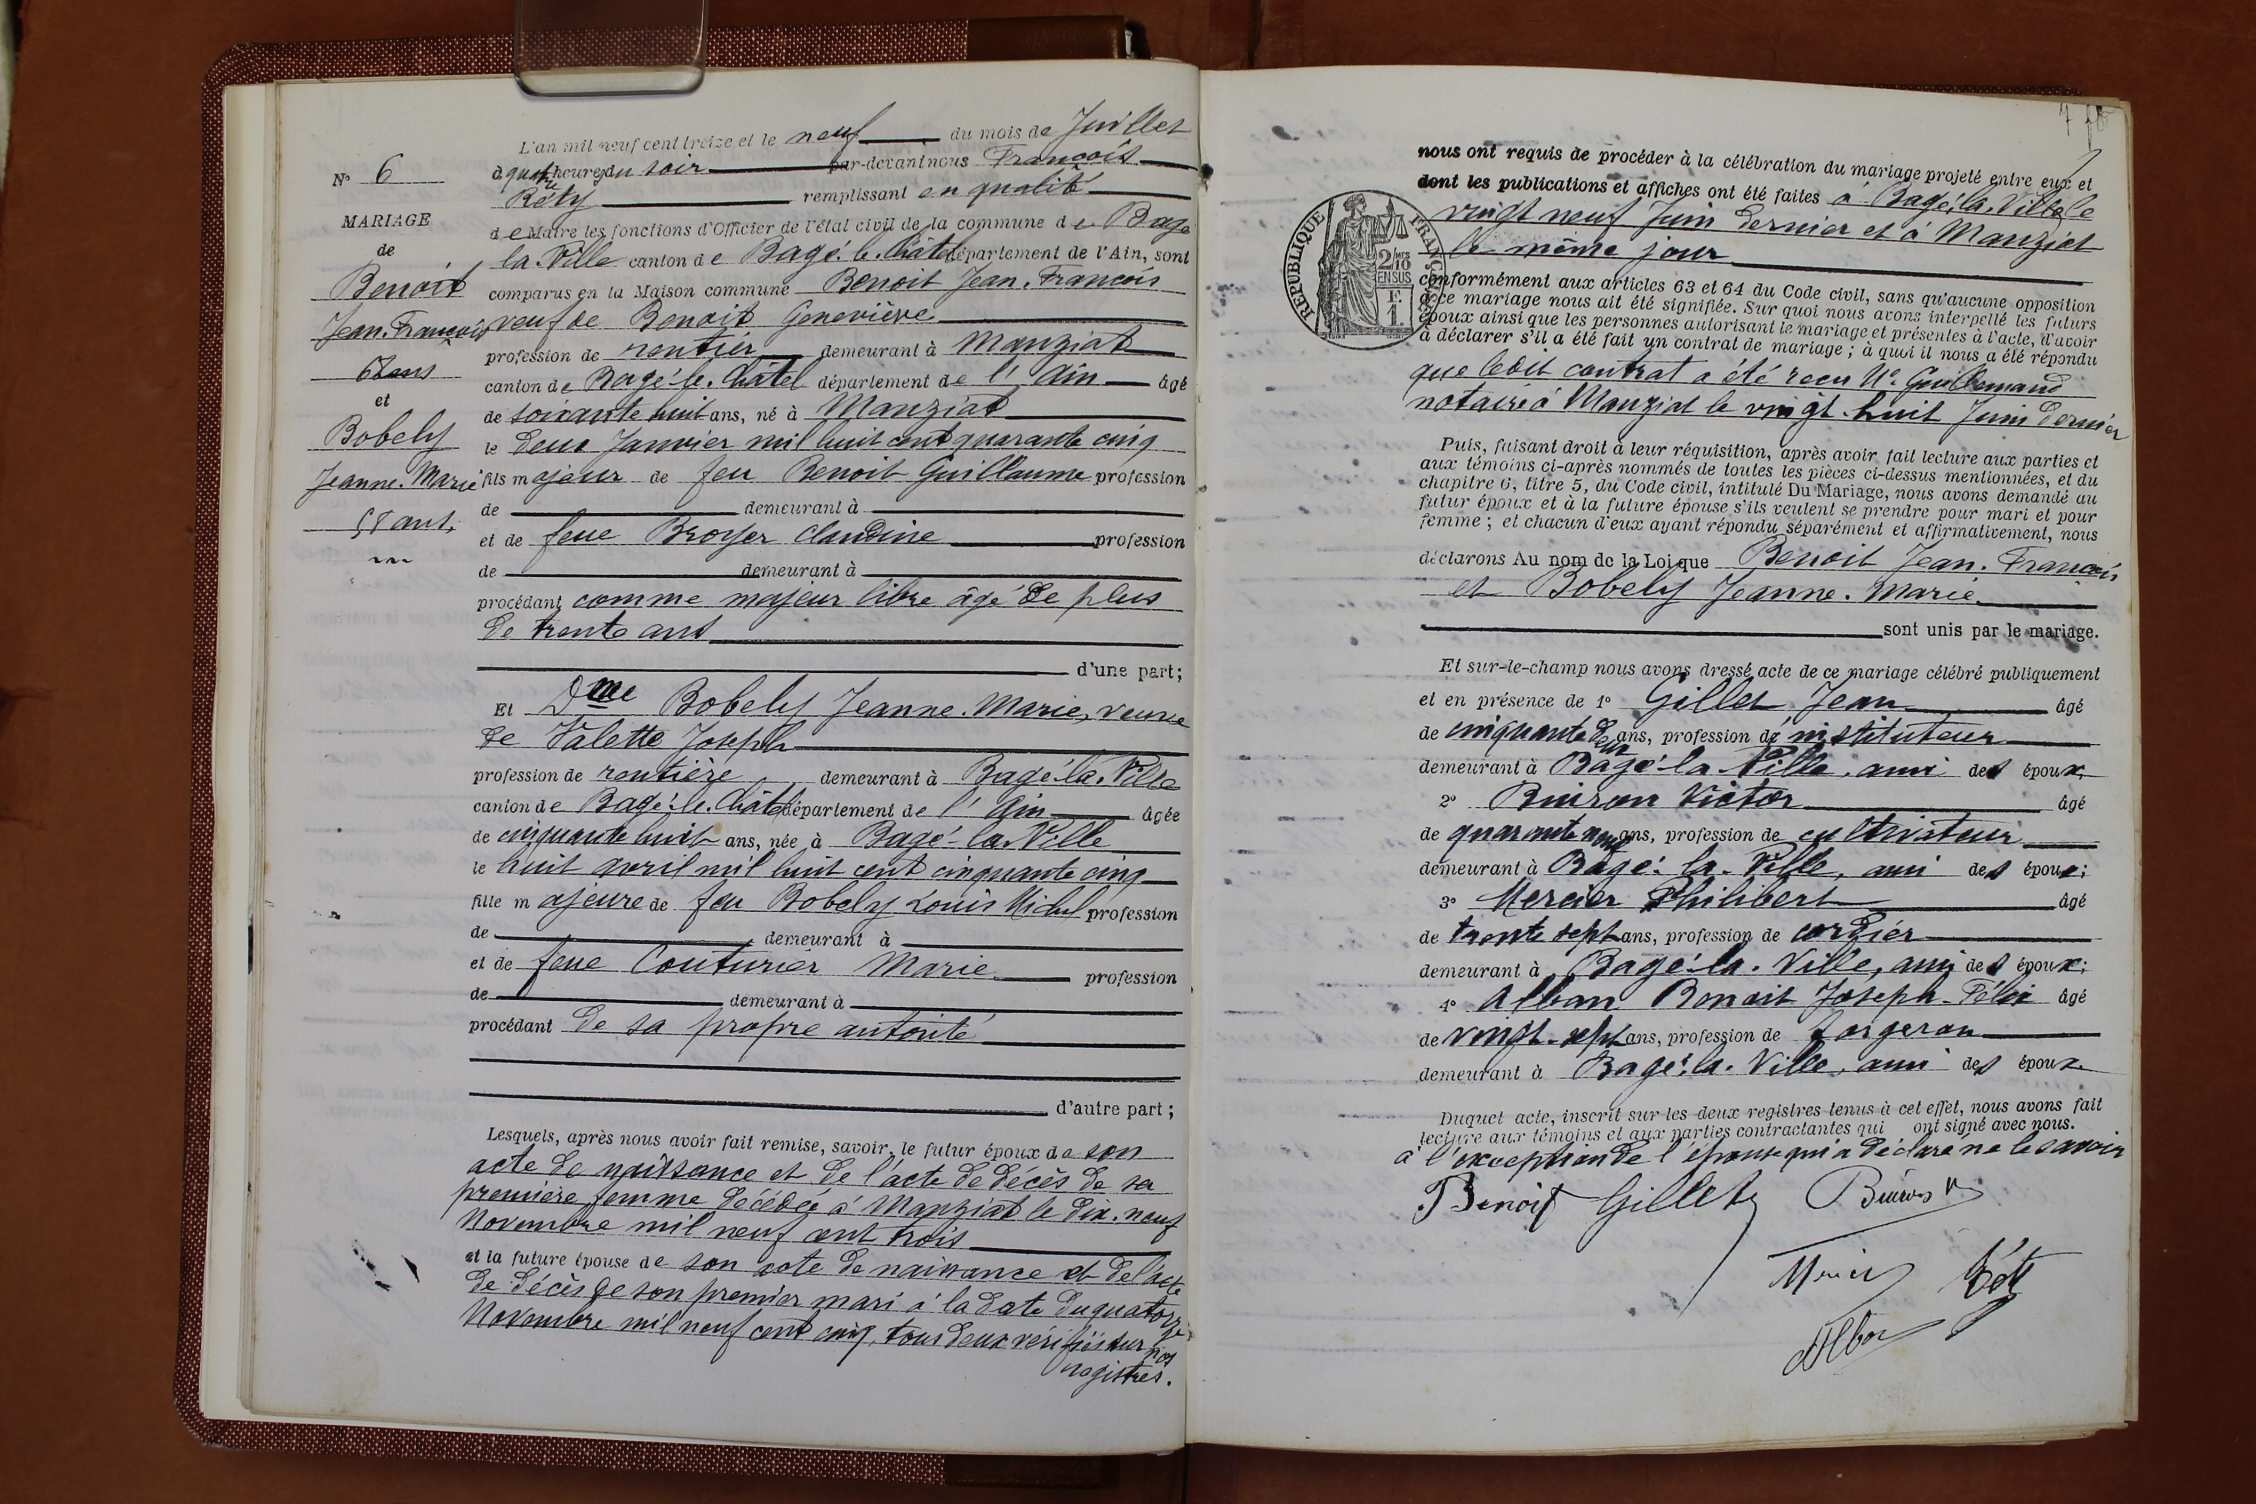 N° 6
MARIAGE
de
Benoit
Jean-François
68 ans
et
Bobely
Jeanne-Marie
58 ans
L'an mil neuf cent treize et le neuf du mois de Juillet
à quatre heures du soir par-devant nous François
Réty remplissant en qualité
de Maire les fonctions d'Officier de l'état civil de la commune de Bagé
la-Ville canton de Bagé-le-Châtel département de l'Ain, sont
comparus en la Maison commune Benoit Jean-François
veuf de Benoit Geneviève
profession de rentier demeurant à Manziat
canton de Bagé-le-Châtel département de l'Ain âgé
de soixante huit ans, né à Manziat
le deux Janvier mil huit cent quarante cinq
fils majeur de feu Benoit Guillaume profession
de demeurant à
et de feue Broyer Claudine profession
de demeurant à
procédant comme majeur libre âgé de plus
de trente ans
d'une part;
Et Dme Bobely Jeanne-Marie, veuve
de Valette Joseph
profession de rentière demeurant à Bagé-la-Ville
canton de Bagé-le-Châtel département de l'Ain âgée
de cinquante huit ans, née à Bagé-la-Ville
le huit avril mil huit cent cinquante cinq
fille majeure de feu Bobely Louis Michel profession
de demeurant à
et de feue Couturier Marie profession
de demeurant à
procédant de sa propre autorité
d'autre part;
Lesquels, après nous avoir fait remise, savoir, le futur époux de son
acte de naissance et de l'acte de décès de sa
première femme décédée à Manziat le dix-neuf
Novembre mil neuf cent trois
et la future épouse de son acte de naissance et de l'acte
de décès de son premier mari à la date du quatorze
Novembre mil neuf cent cinq, tous deux vérifiés sur nos
registres.
nous ont requis de procéder à la célébration du mariage projeté entre eux et
dont les publications et affiches ont été faites à Bagé-la-Ville le
vingt neuf Juin dernier et à Manziat
le même jour
REPUBLIQUE FRANÇAISE
2/10
EN SUS
1 F.
conformément aux articles 63 et 64 du Code civil, sans qu'aucune opposition
à ce mariage nous ait été signifiée. Sur quoi nous avons interpellé les futurs
époux ainsi que les personnes autorisant le mariage et présentes à l'acte, d'avoir
à déclarer s'il a été fait un contrat de mariage; à quoi il nous a été répondu
que ledit contrat a été reçu Me Guillemaud
notaire à Manziat le vingt-huit Juin dernier
Puis, faisant droit à leur réquisition, après avoir fait lecture aux parties et
aux témoins ci-après nommés de toutes les pièces ci-dessus mentionnées, et du
chapitre 6, titre 5, du Code civil, intitulé Du Mariage, nous avons demandé au
futur époux et à la future épouse s'ils veulent se prendre pour mari et pour
femme; et chacun d'eux ayant répondu séparément et affirmativement, nous
déclarons Au nom de la Loi que Benoit Jean-François
et Bobely Jeanne-Marie
sont unis par le mariage.
Et sur-le-champ nous avons dressé acte de ce mariage célébré publiquement
et en présence de 1° Gillet Jean âgé
de cinquante deux ans, profession d'instituteur
demeurant à Bagé-la-Ville, ami des époux;
2° Buiron Victor âgé
de quarante neuf ans, profession de cultivateur
demeurant à Bagé-la-Ville, ami des époux;
3° Mercier Philibert âgé
de trente sept ans, profession de cordier
demeurant à Bagé-la-Ville, ami des époux;
4° Alban Benoit Joseph Félix âgé
de vingt-sept ans, profession de forgeron
demeurant à Bagé-la-Ville, ami des époux
Duquel acte, inscrit sur les deux registres tenus à cet effet, nous avons fait
lecture aux témoins et aux parties contractantes qui ont signé avec nous.
à l'exception de l'épouse qui a déclaré ne le savoir
Benoit Gillet Buiron V
Mercier Réty
Alban